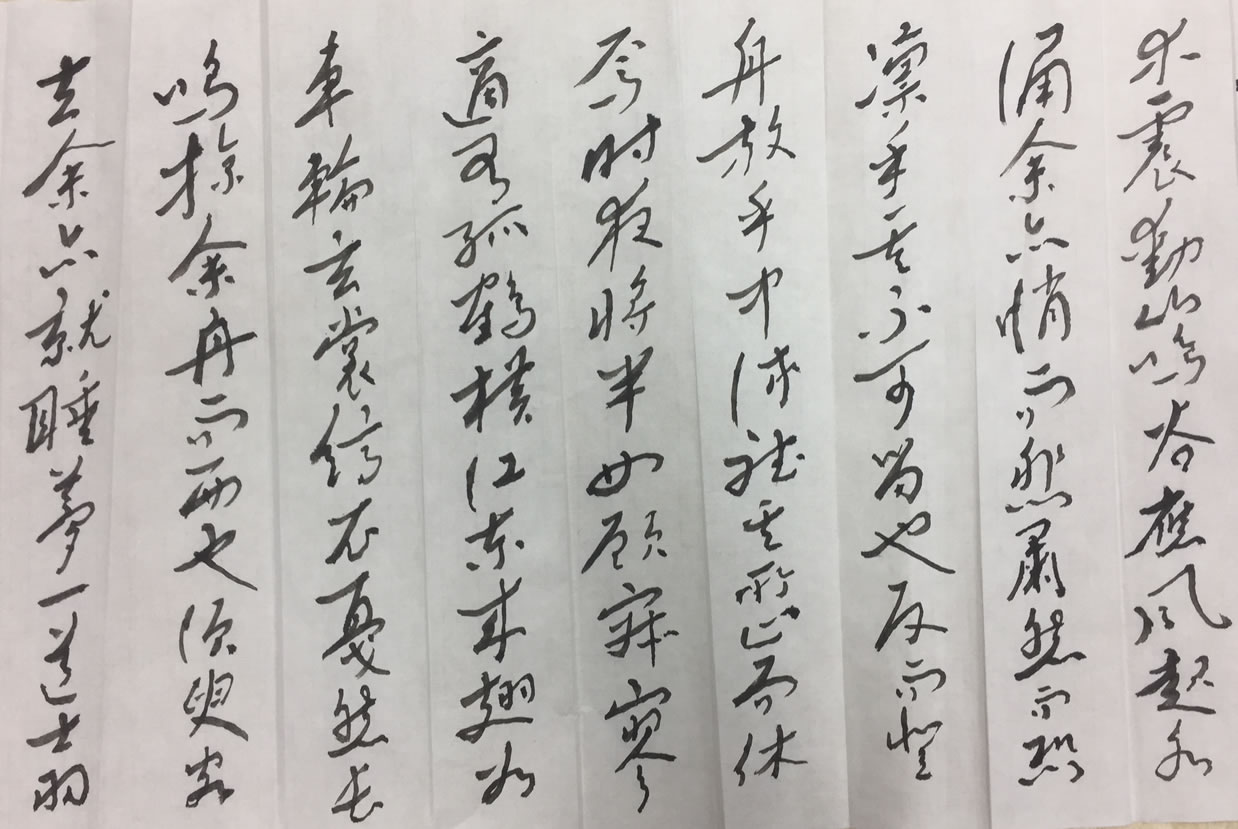 木震動山鳴谷應風起水
涌余亦悄而悲肅然而恐
凜乎其不可留也反而登
舟放乎中流聽其所止而休
焉時夜將半四顧寂寥
適有孤鶴橫江東來翅如
車輪玄裳縞衣戛然長
鳴掠余舟而西也須臾客
去余亦就睡夢一道士羽